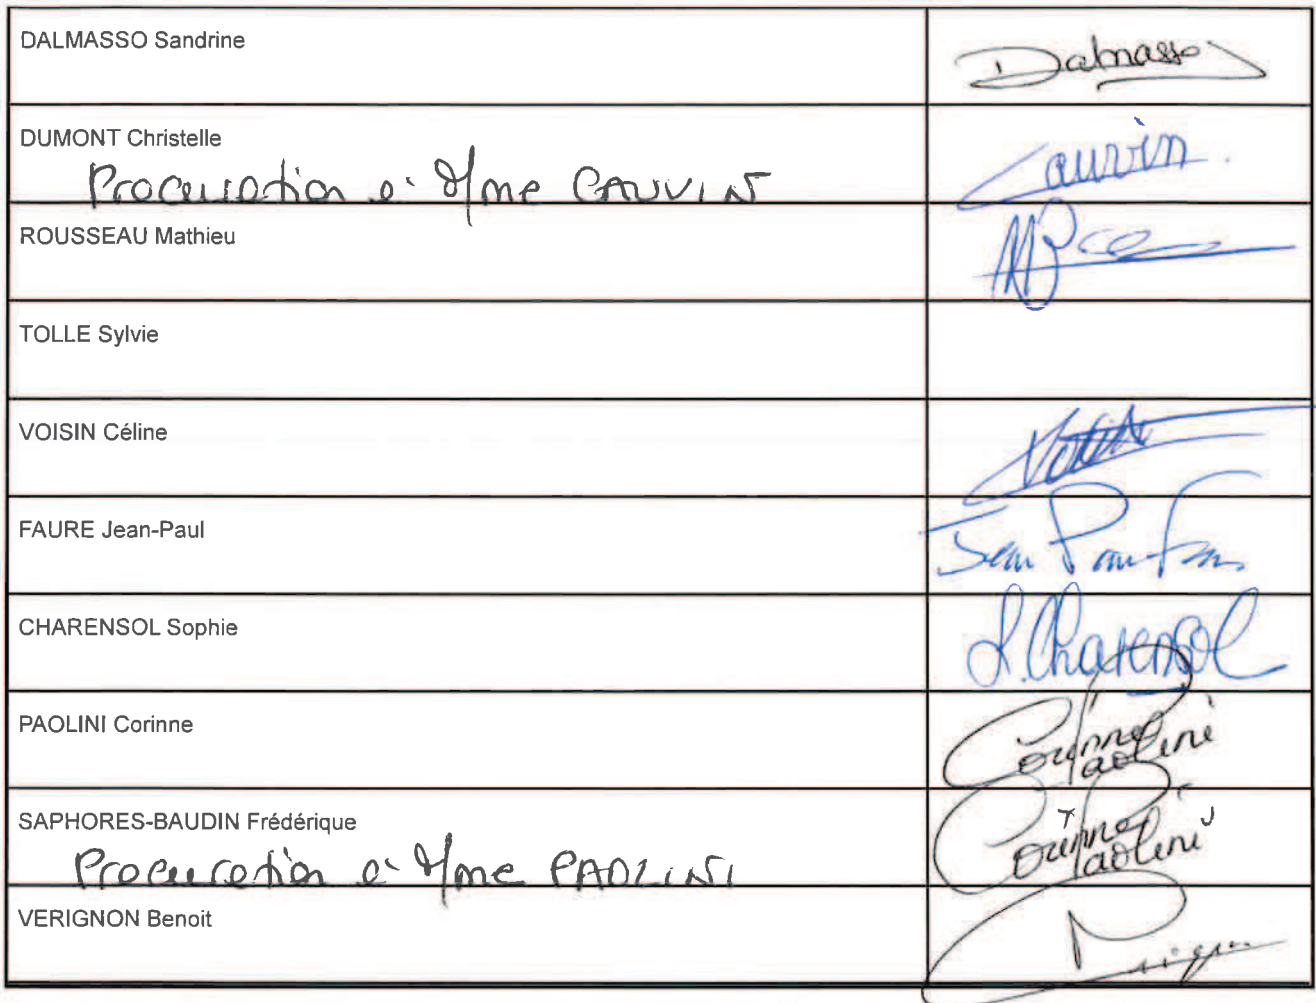 DALMASSO Sandrine
Dalmasso
DUMONT Christelle
Procuration à Mme CAUVIN
Cauvin
ROUSSEAU Mathieu
TOLLE Sylvie
VOISIN Céline
FAURE Jean-Paul
Jean Paul Faure
CHARENSOL Sophie
S. Charensol
PAOLINI Corinne
Corinne Paolini
SAPHORES-BAUDIN Frédérique
Procuration à Mme PAOLINI
Corinne Paolini
VERIGNON Benoit